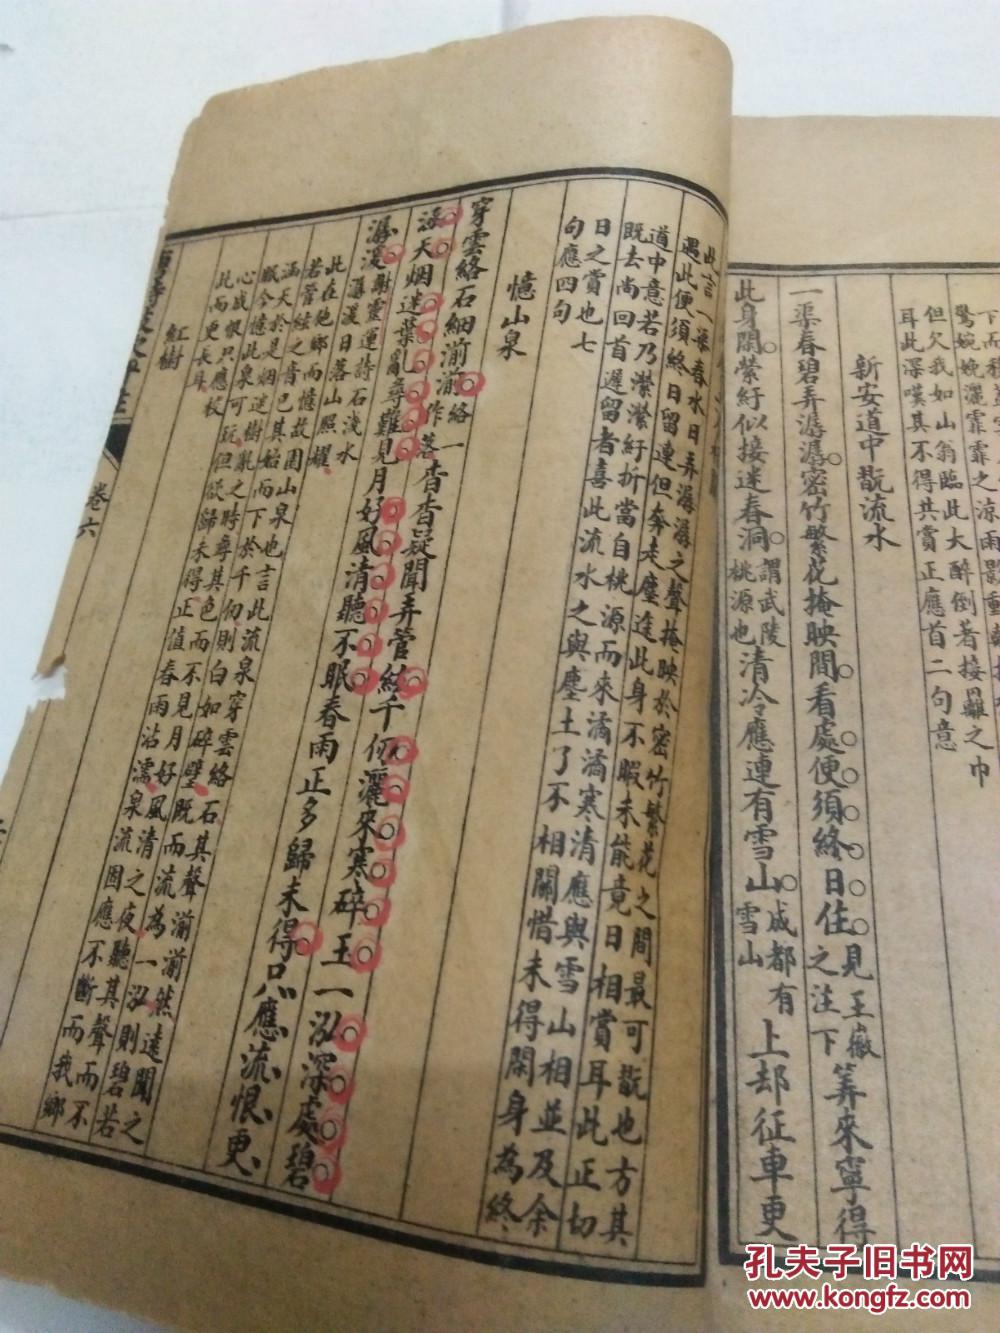 但欠我如山翁臨此大醉倒著接䍦之巾
耳此深嘆其不得共賞正應首二句意
新安道中翫流水
一渠春碧弄潺潺密竹繁花掩映間看處便須終日住見王徽之注下筭來寧得
此身閑縈紆似接迷春洞謂武陵桃源也清冷應連有雪山成都有雪山上却征車更
此言一渠春水日弄潺潺之聲掩映於密竹繁花之間最可翫也方其
遇此便須終日留連但奔走塵途此身不暇未能竟日相賞耳此正切
道中意若乃縈縈紆折當自桃源而來潏潏寒清應與雪山相並及余
既去尚回首遲留者喜此流水之與塵土了不相關惜未得閑身為終
日之賞也七
句應四句
憶山泉
穿雲絡石細湔湔絡一作落杳杳疑聞弄管絃千仞灑來寒碎玉一泓深處碧
涵天烟迷葉亂尋難見月好風清聽不眠春雨正多歸未得只應流恨更
潺湲謝靈運詩石淺水潺湲日落山照耀
此在他鄉而憶故園山泉也言此流泉穿雲絡石其聲湔湔然遠聞之
若管絃之音已其始而下於千仞則白如碎璧既而流為一泓則碧若
涵天於是烟迷樹亂之時尋其色而不見月好風清之夜聽其聲而不
眠今憶此泉可玩但欲歸未得正值春雨沾濡泉流固應不斷而我鄉
心成恨只應杖
此而更長耳
紅樹
卷六
孔夫子旧书网
www.kongfz.com